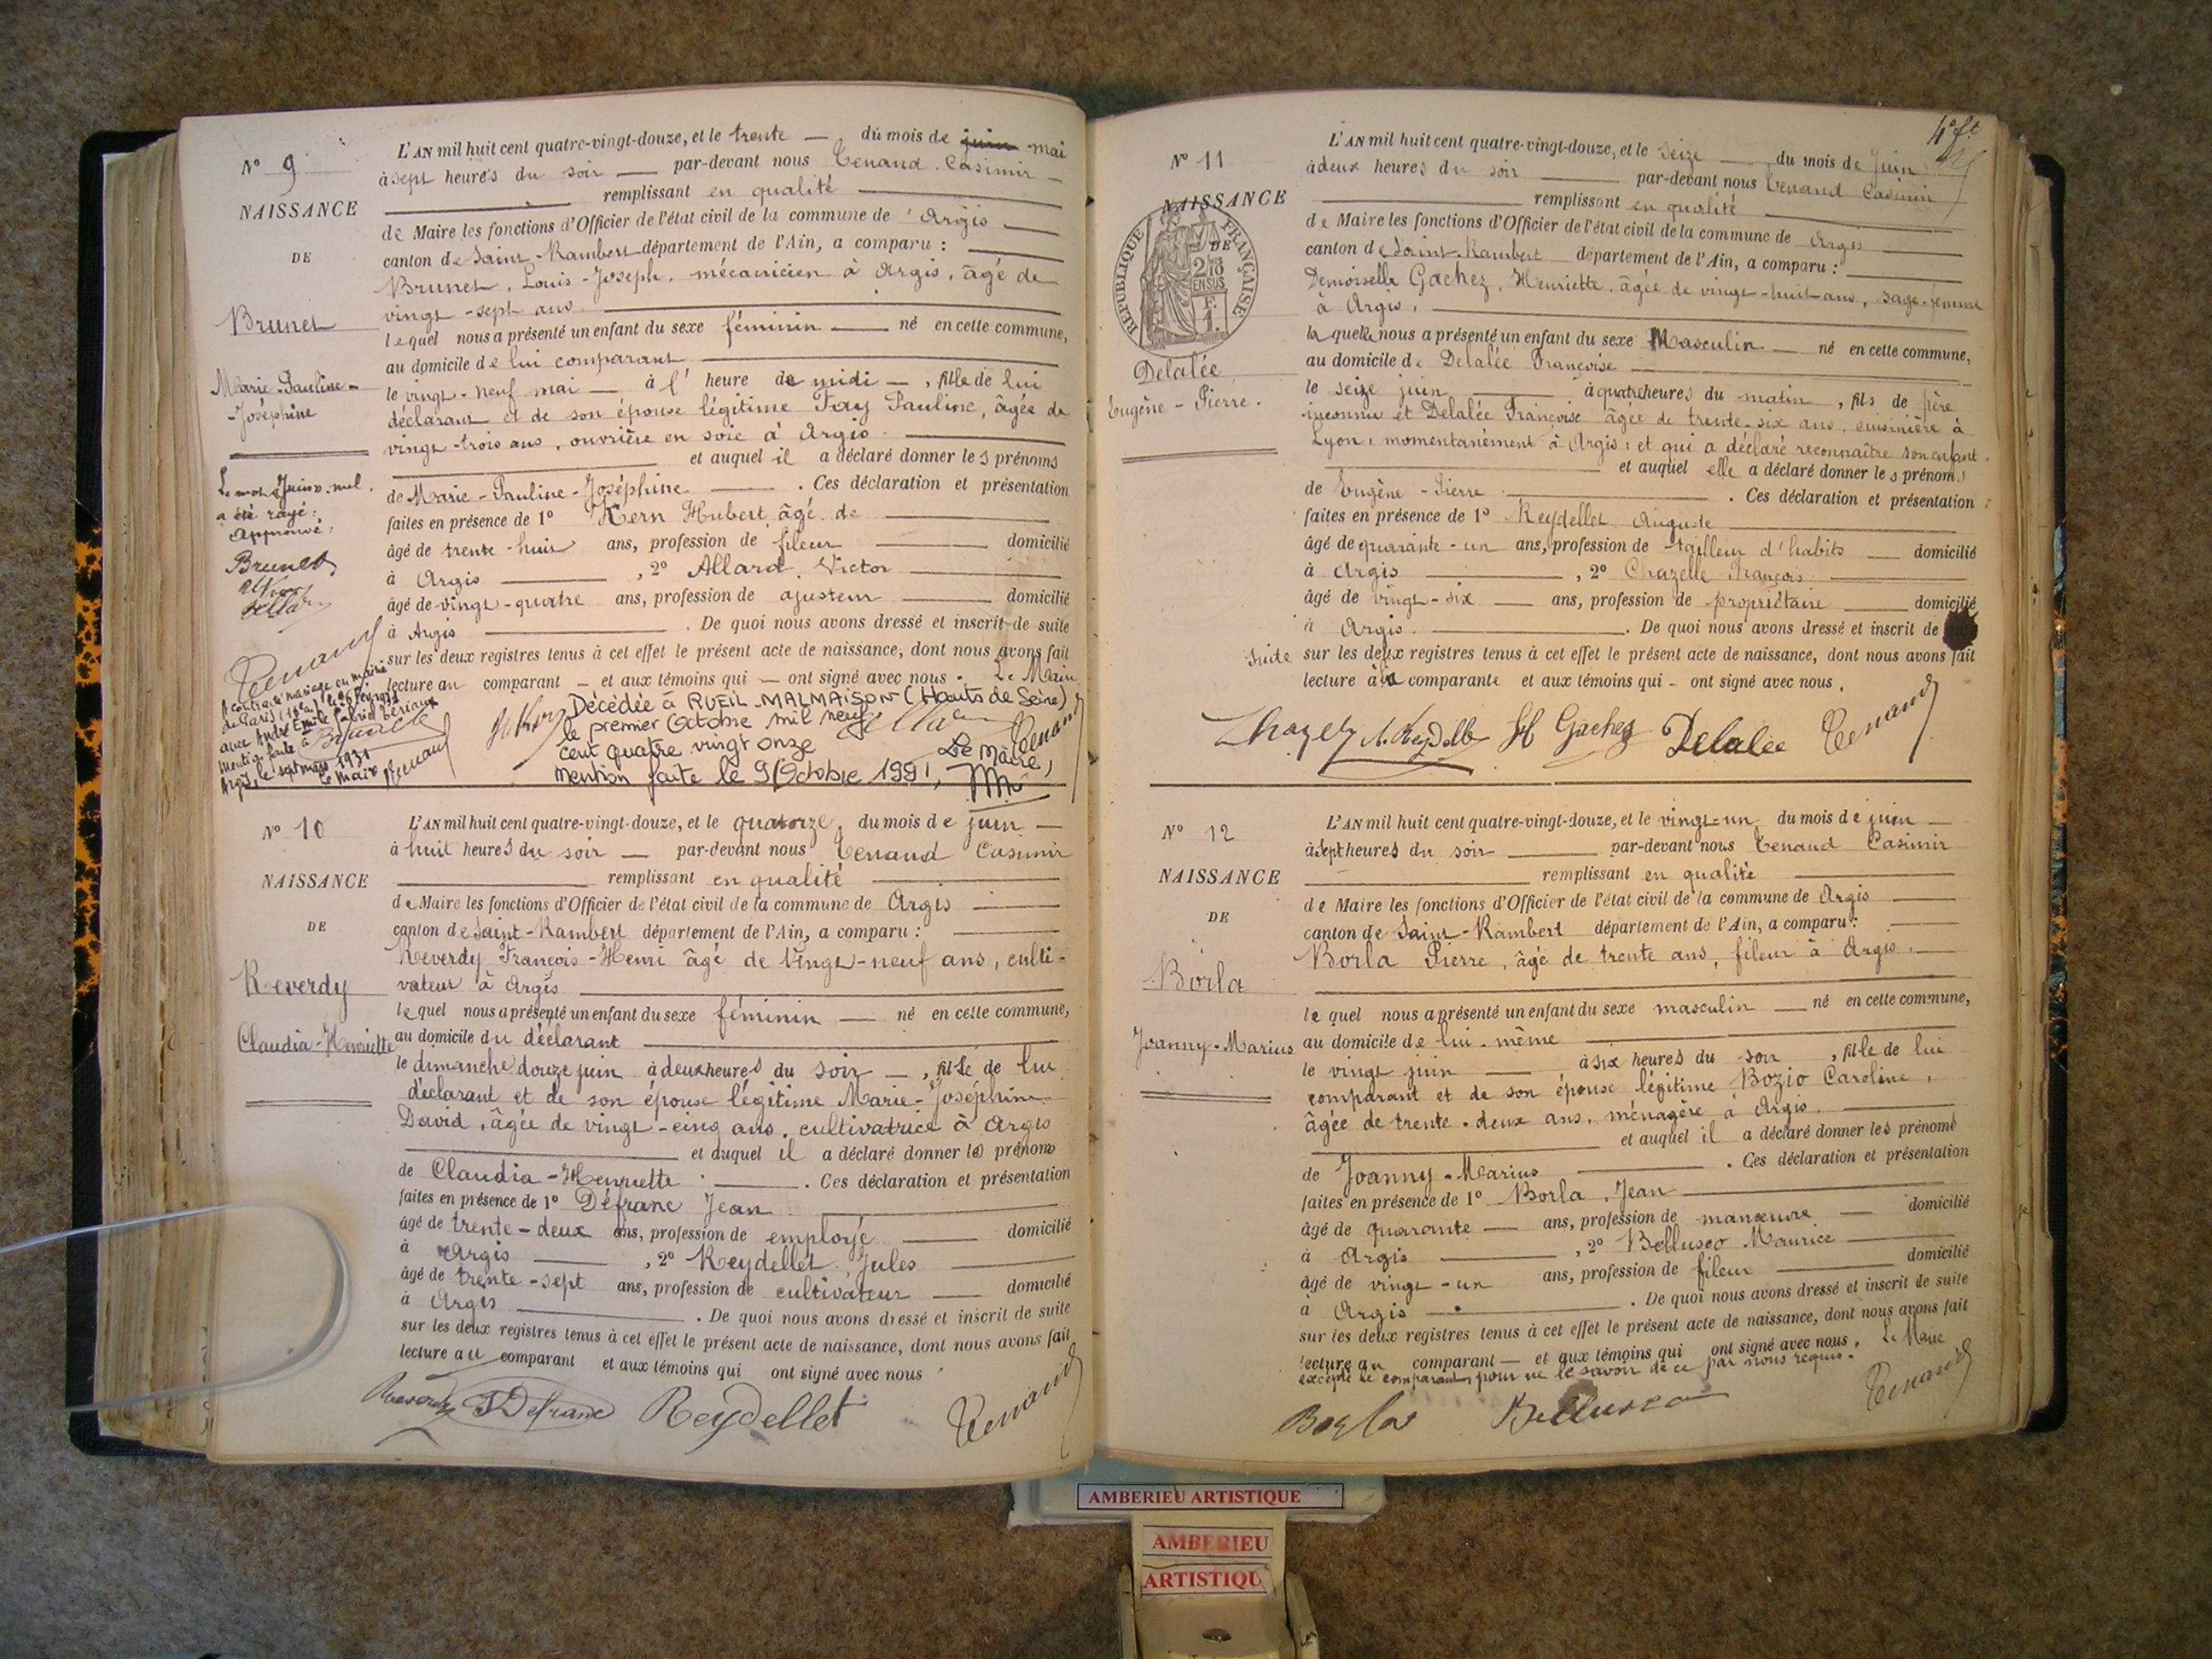 N° 9
NAISSANCE
DE
Brunet
Marie-Pauline-
-Joséphine
Le mot Juin
a été rayé:
Approuvé:
Brunet
L'AN mil huit cent quatre-vingt-douze, et le trente — du mois de juin mai
à sept heures du soir — par-devant nous Tenand Casimir —
remplissant en qualité
de Maire les fonctions d'Officier de l'état civil de la commune de Argis
canton de Saint-Rambert département de l'Ain, a comparu :
Brunet, Louis-Joseph, mécanicien à Argis, âgé de
vingt-sept ans.
lequel nous a présenté un enfant du sexe féminin — né en cette commune,
au domicile de lui comparant
le vingt-neuf mai — à l' heure de midi —, fille de lui
déclarant et de son épouse légitime Fay Pauline, âgée de
vingt-trois ans, ouvrière en soie à Argis.
et auquel il a déclaré donner les prénoms
de Marie-Pauline-Joséphine — . Ces déclaration et présentation
faites en présence de 1° Kern Hubert âgé de
âgé de trente-huit ans, profession de fileur — domicilié
à Argis — , 2° Allard, Victor
âgé de vingt-quatre ans, profession de ajusteur — domicilié
à Argis — . De quoi nous avons dressé et inscrit de suite
sur les deux registres tenus à cet effet le présent acte de naissance, dont nous avons fait
lecture au comparant — et aux témoins qui — ont signé avec nous. Le Maire
Tenand
A contracté mariage en mairie
de Paris (16e a) le 26 Février 1931
avec André Emile Gabriel Bériaux
Mention faite à
Argis, le sept mars 1931
Le Maire
Décédée à RUEIL-MALMAISON (Hauts de Seine)
le premier Octobre mil neuf
cent quatre vingt onze
Mention faite le 9 Octobre 1991,
Le Maire,
Tenand
N° 10
NAISSANCE
DE
Reverdy
Claudia-Henriette
L'AN mil huit cent quatre-vingt-douze, et le quatorze, du mois de juin —
à huit heures du soir — par-devant nous Tenand Casimir
remplissant en qualité
de Maire les fonctions d'Officier de l'état civil de la commune de Argis
canton de Saint-Rambert département de l'Ain, a comparu :
Reverdy François-Henri âgé de vingt-neuf ans, culti-
vateur à Argis
lequel nous a présenté un enfant du sexe féminin — né en cette commune,
au domicile du déclarant
le dimanche douze juin à deux heures du soir —, fille de lui
déclarant et de son épouse légitime Marie-Joséphine
David, âgée de vingt-cinq ans, cultivatrice à Argis
et auquel il a déclaré donner les prénoms
de Claudia-Henriette — . Ces déclaration et présentation
faites en présence de 1° Défranc Jean
âgé de trente-deux ans, profession de employé — domicilié
à Argis — , 2° Reydellet Jules
âgé de trente-sept ans, profession de cultivateur — domicilié
à Argis — . De quoi nous avons dressé et inscrit de suite
sur les deux registres tenus à cet effet le présent acte de naissance, dont nous avons fait
lecture au comparant et aux témoins qui ont signé avec nous
Reverdy J Defranc Reydellet Tenand
4e ft
N° 11
NAISSANCE
DE
REPUBLIQUE FRANÇAISE
Delalée
Eugène-Pierre.
L'AN mil huit cent quatre-vingt-douze, et le seize — du mois de Juin
à deux heures du soir — par-devant nous Tenand Casimir
remplissant en qualité
de Maire les fonctions d'Officier de l'état civil de la commune de Argis
canton de Saint-Rambert département de l'Ain, a comparu :
Demoiselle Gachez, Henriette, âgée de vingt-huit ans, sage-femme
à Argis.
laquelle nous a présenté un enfant du sexe Masculin — né en cette commune,
au domicile de Delalée Françoise
le seize juin — à quatre heures du matin, fils de père
inconnu et Delalée Françoise âgée de trente-six ans, cuisinière à
Lyon, momentanément à Argis, et qui a déclaré reconnaître son enfant.
et auquel elle a déclaré donner les prénoms
de Eugène-Pierre — . Ces déclaration et présentation
faites en présence de 1° Reydellet Auguste
âgé de quarante-un ans, profession de tailleur d'habits — domicilié
à Argis — , 2° Chazelle François
âgé de vingt-six — ans, profession de propriétaire — domicilié
à Argis. — . De quoi nous avons dressé et inscrit de
suite sur les deux registres tenus à cet effet le présent acte de naissance, dont nous avons fait
lecture à la comparante et aux témoins qui - ont signé avec nous.
A. Reydellet H Gachez Delalée Tenand
N° 12
NAISSANCE
DE
Borla
Joanny-Marius
L'AN mil huit cent quatre-vingt-douze, et le vingt-un du mois de juin —
à sept heures du soir — par-devant nous Tenand Casimir
remplissant en qualité
de Maire les fonctions d'Officier de l'état civil de la commune de Argis
canton de Saint-Rambert département de l'Ain, a comparu :
Borla Pierre, âgé de trente ans, fileur à Argis.
lequel nous a présenté un enfant du sexe masculin — né en cette commune,
au domicile de lui-même
le vingt juin — à six heures du soir, fils de lui
comparant et de son épouse légitime Bozio Caroline,
âgée de trente-deux ans, ménagère à Argis.
et auquel il a déclaré donner les prénoms
de Joanny-Marius — . Ces déclaration et présentation
faites en présence de 1° Borla, Jean
âgé de quarante — ans, profession de manœuvre — domicilié
à Argis — , 2° Bellusco Maurice
âgé de vingt-un ans, profession de fileur — domicilié
à Argis — . De quoi nous avons dressé et inscrit de suite
sur les deux registres tenus à cet effet le présent acte de naissance, dont nous avons fait
lecture au comparant — et aux témoins qui ont signé avec nous. Le Maire
excepté le comparant, pour ne le savoir de ce par nous requis.
Borla Bellusco Tenand
AMBERIEU ARTISTIQUE
AMBERIEU
ARTISTIQU